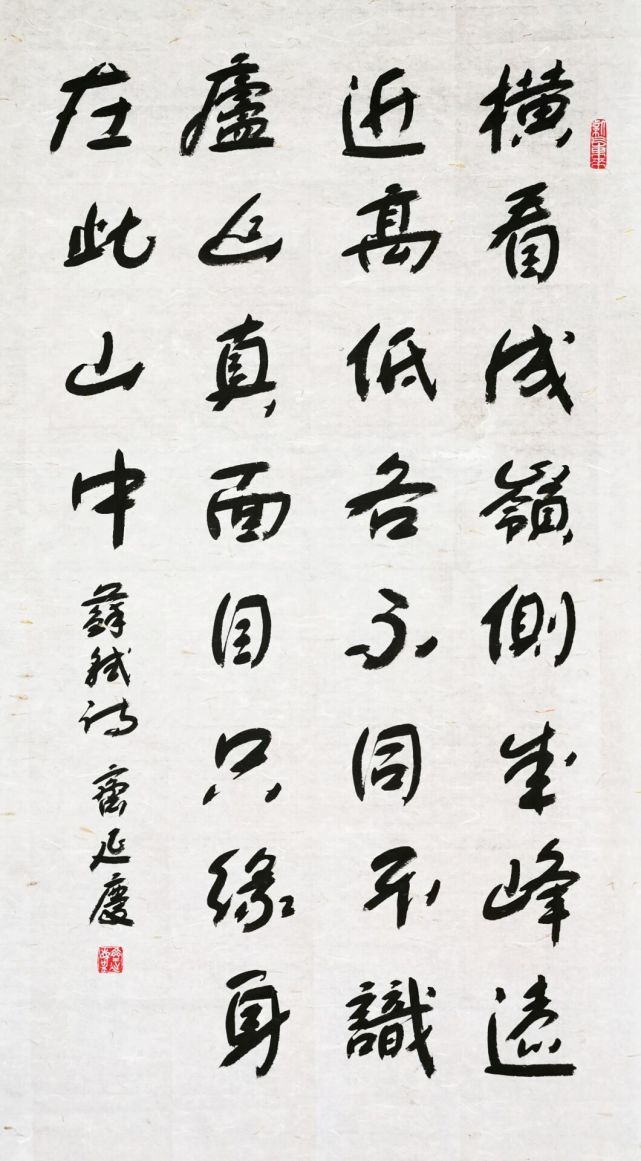 横看成嶺側成峰遠
近高低各不同不識
廬山真面目只緣身
在此山中 蘇軾詩 齊延慶